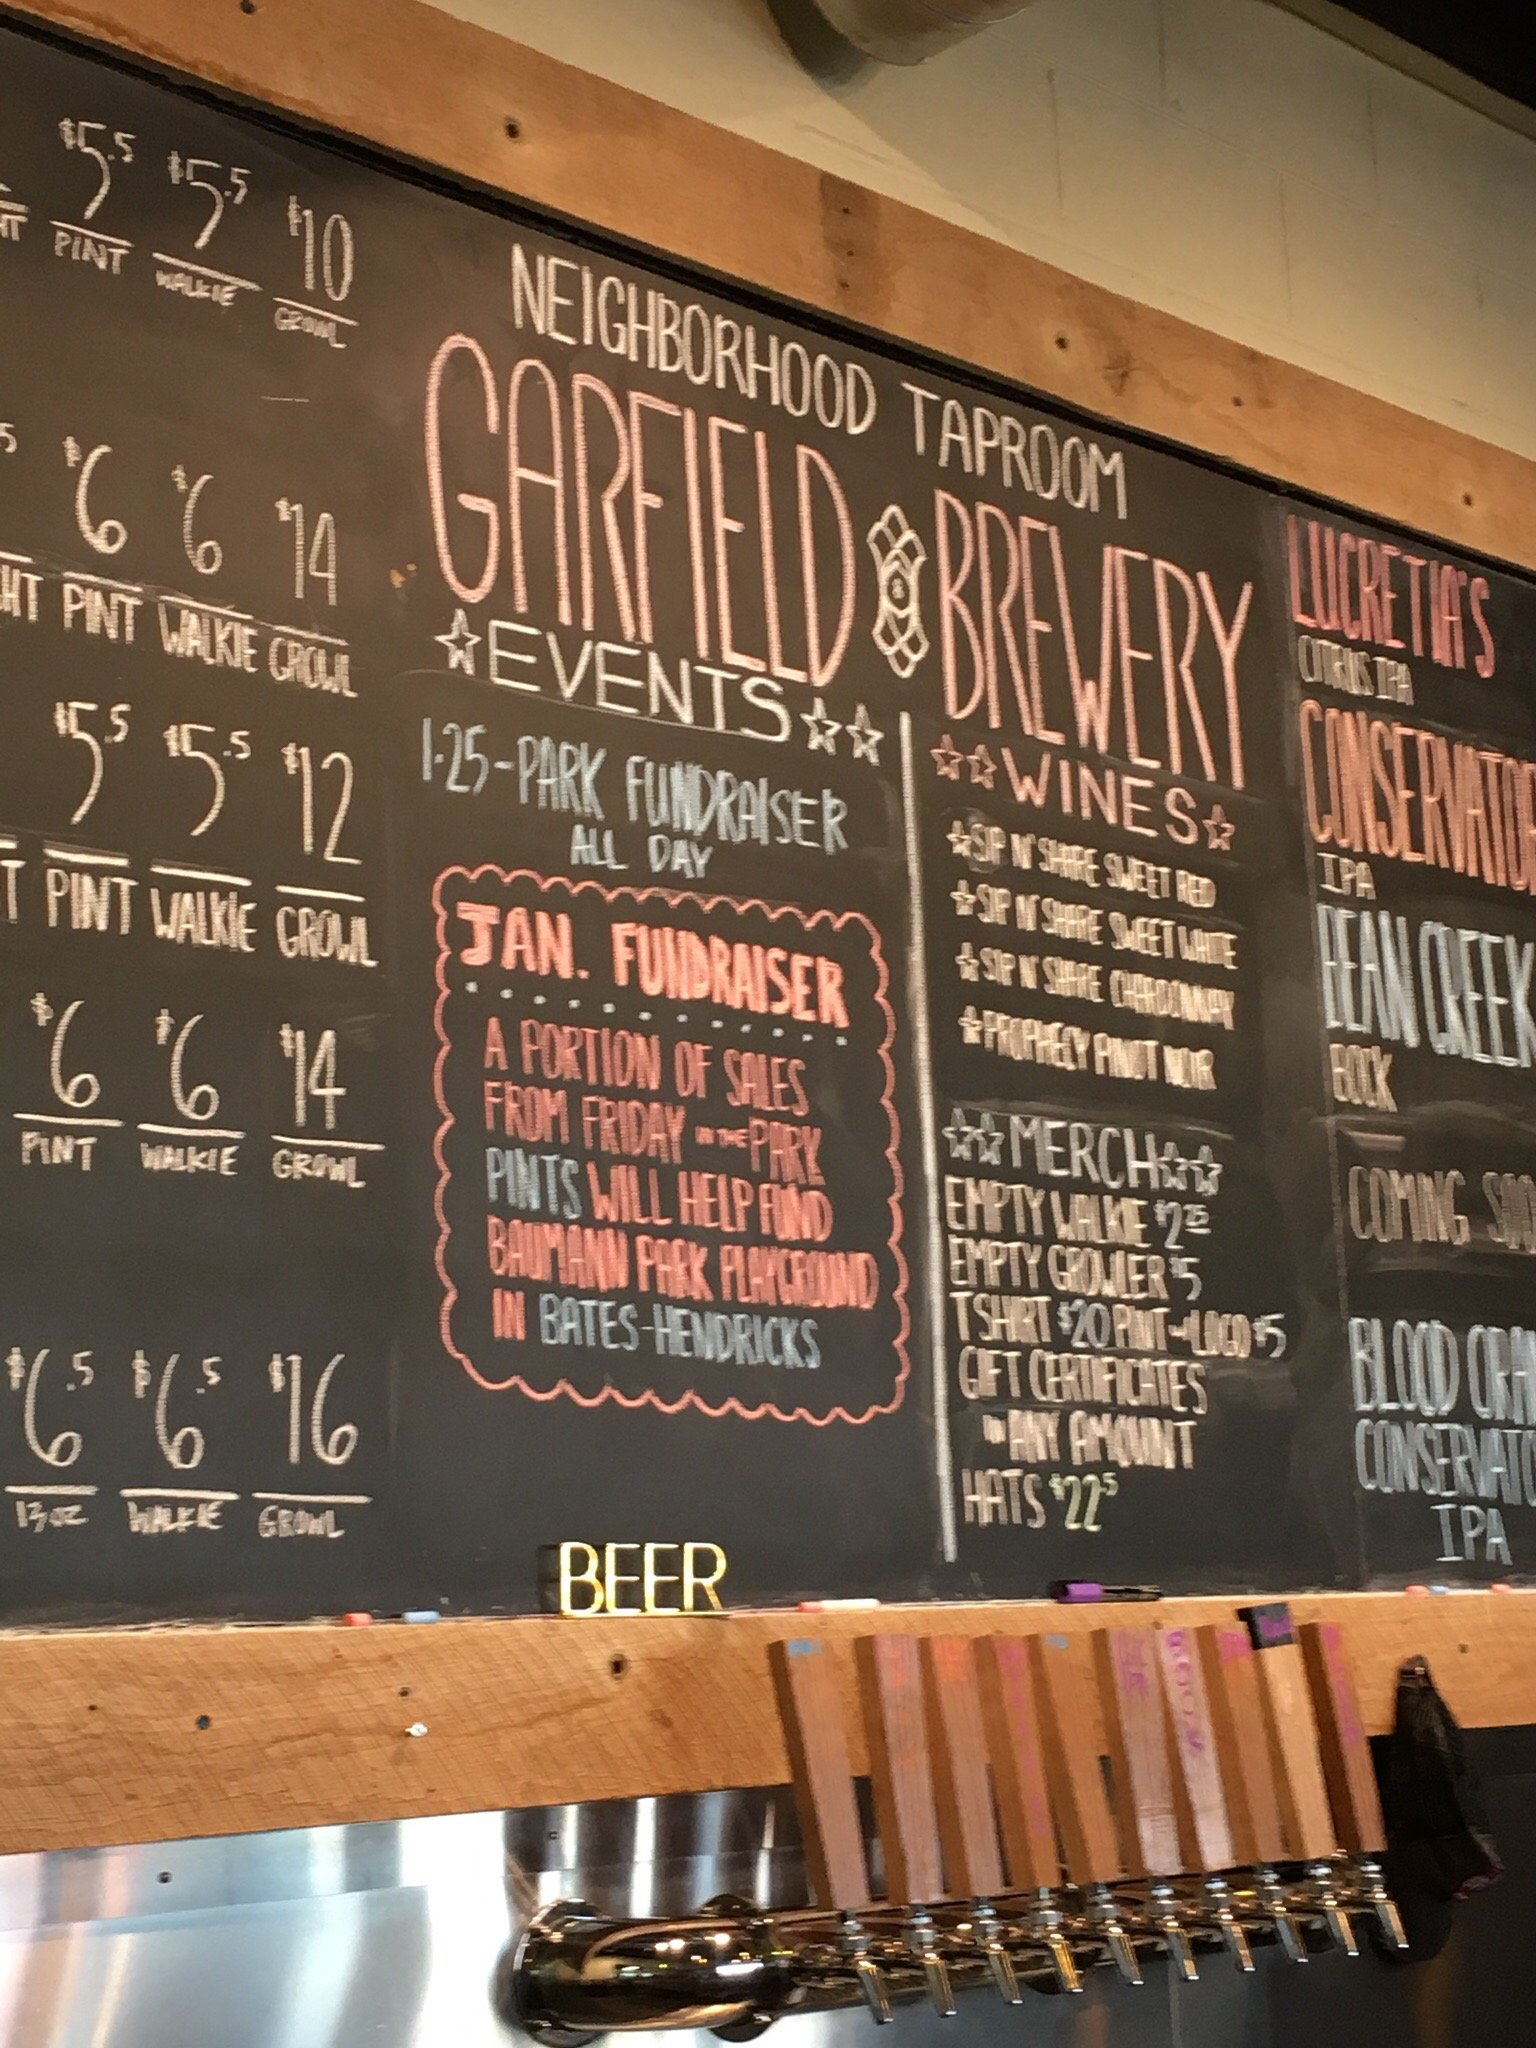 $5.5 $5.5 $10
PINT WALKIE GROWL
$6 $6 $14
PINT WALKIE GROWL
$5.5 $5.5 $12
PINT WALKIE GROWL
$6 $6 $14
PINT WALKIE GROWL
$6.5 $6.5 $16
13 OZ WALKIE GROWL
NEIGHBORHOOD TAPROOM
GARFIELD BREWERY
EVENTS
1-25-PARK FUNDRAISER
ALL DAY
JAN. FUNDRAISER
A PORTION OF SALES
FROM FRIDAY IN THE PARK
PINTS WILL HELP FUND
BAUMANN PARK PLAYGROUND
IN BATES-HENDRICKS
WINES
SIP N' SHARE SWEET RED
SIP N' SHARE SWEET WHITE
SIP N' SHARE CHARDONNAY
PROPHECY PINOT NOIR
MERCH
EMPTY WALKIE $2.25
EMPTY GROWLER $5
T SHIRT $20 PINT-LOGO $5
GIFT CERTIFICATES
IN ANY AMOUNT
HATS $22.5
LUCRETIA'S
CITRUS IPA
CONSERVATO
IPA
BEAN CREEK
BOCK
COMING SOO
BLOOD ORAN
CONSERVATO
IPA
BEER